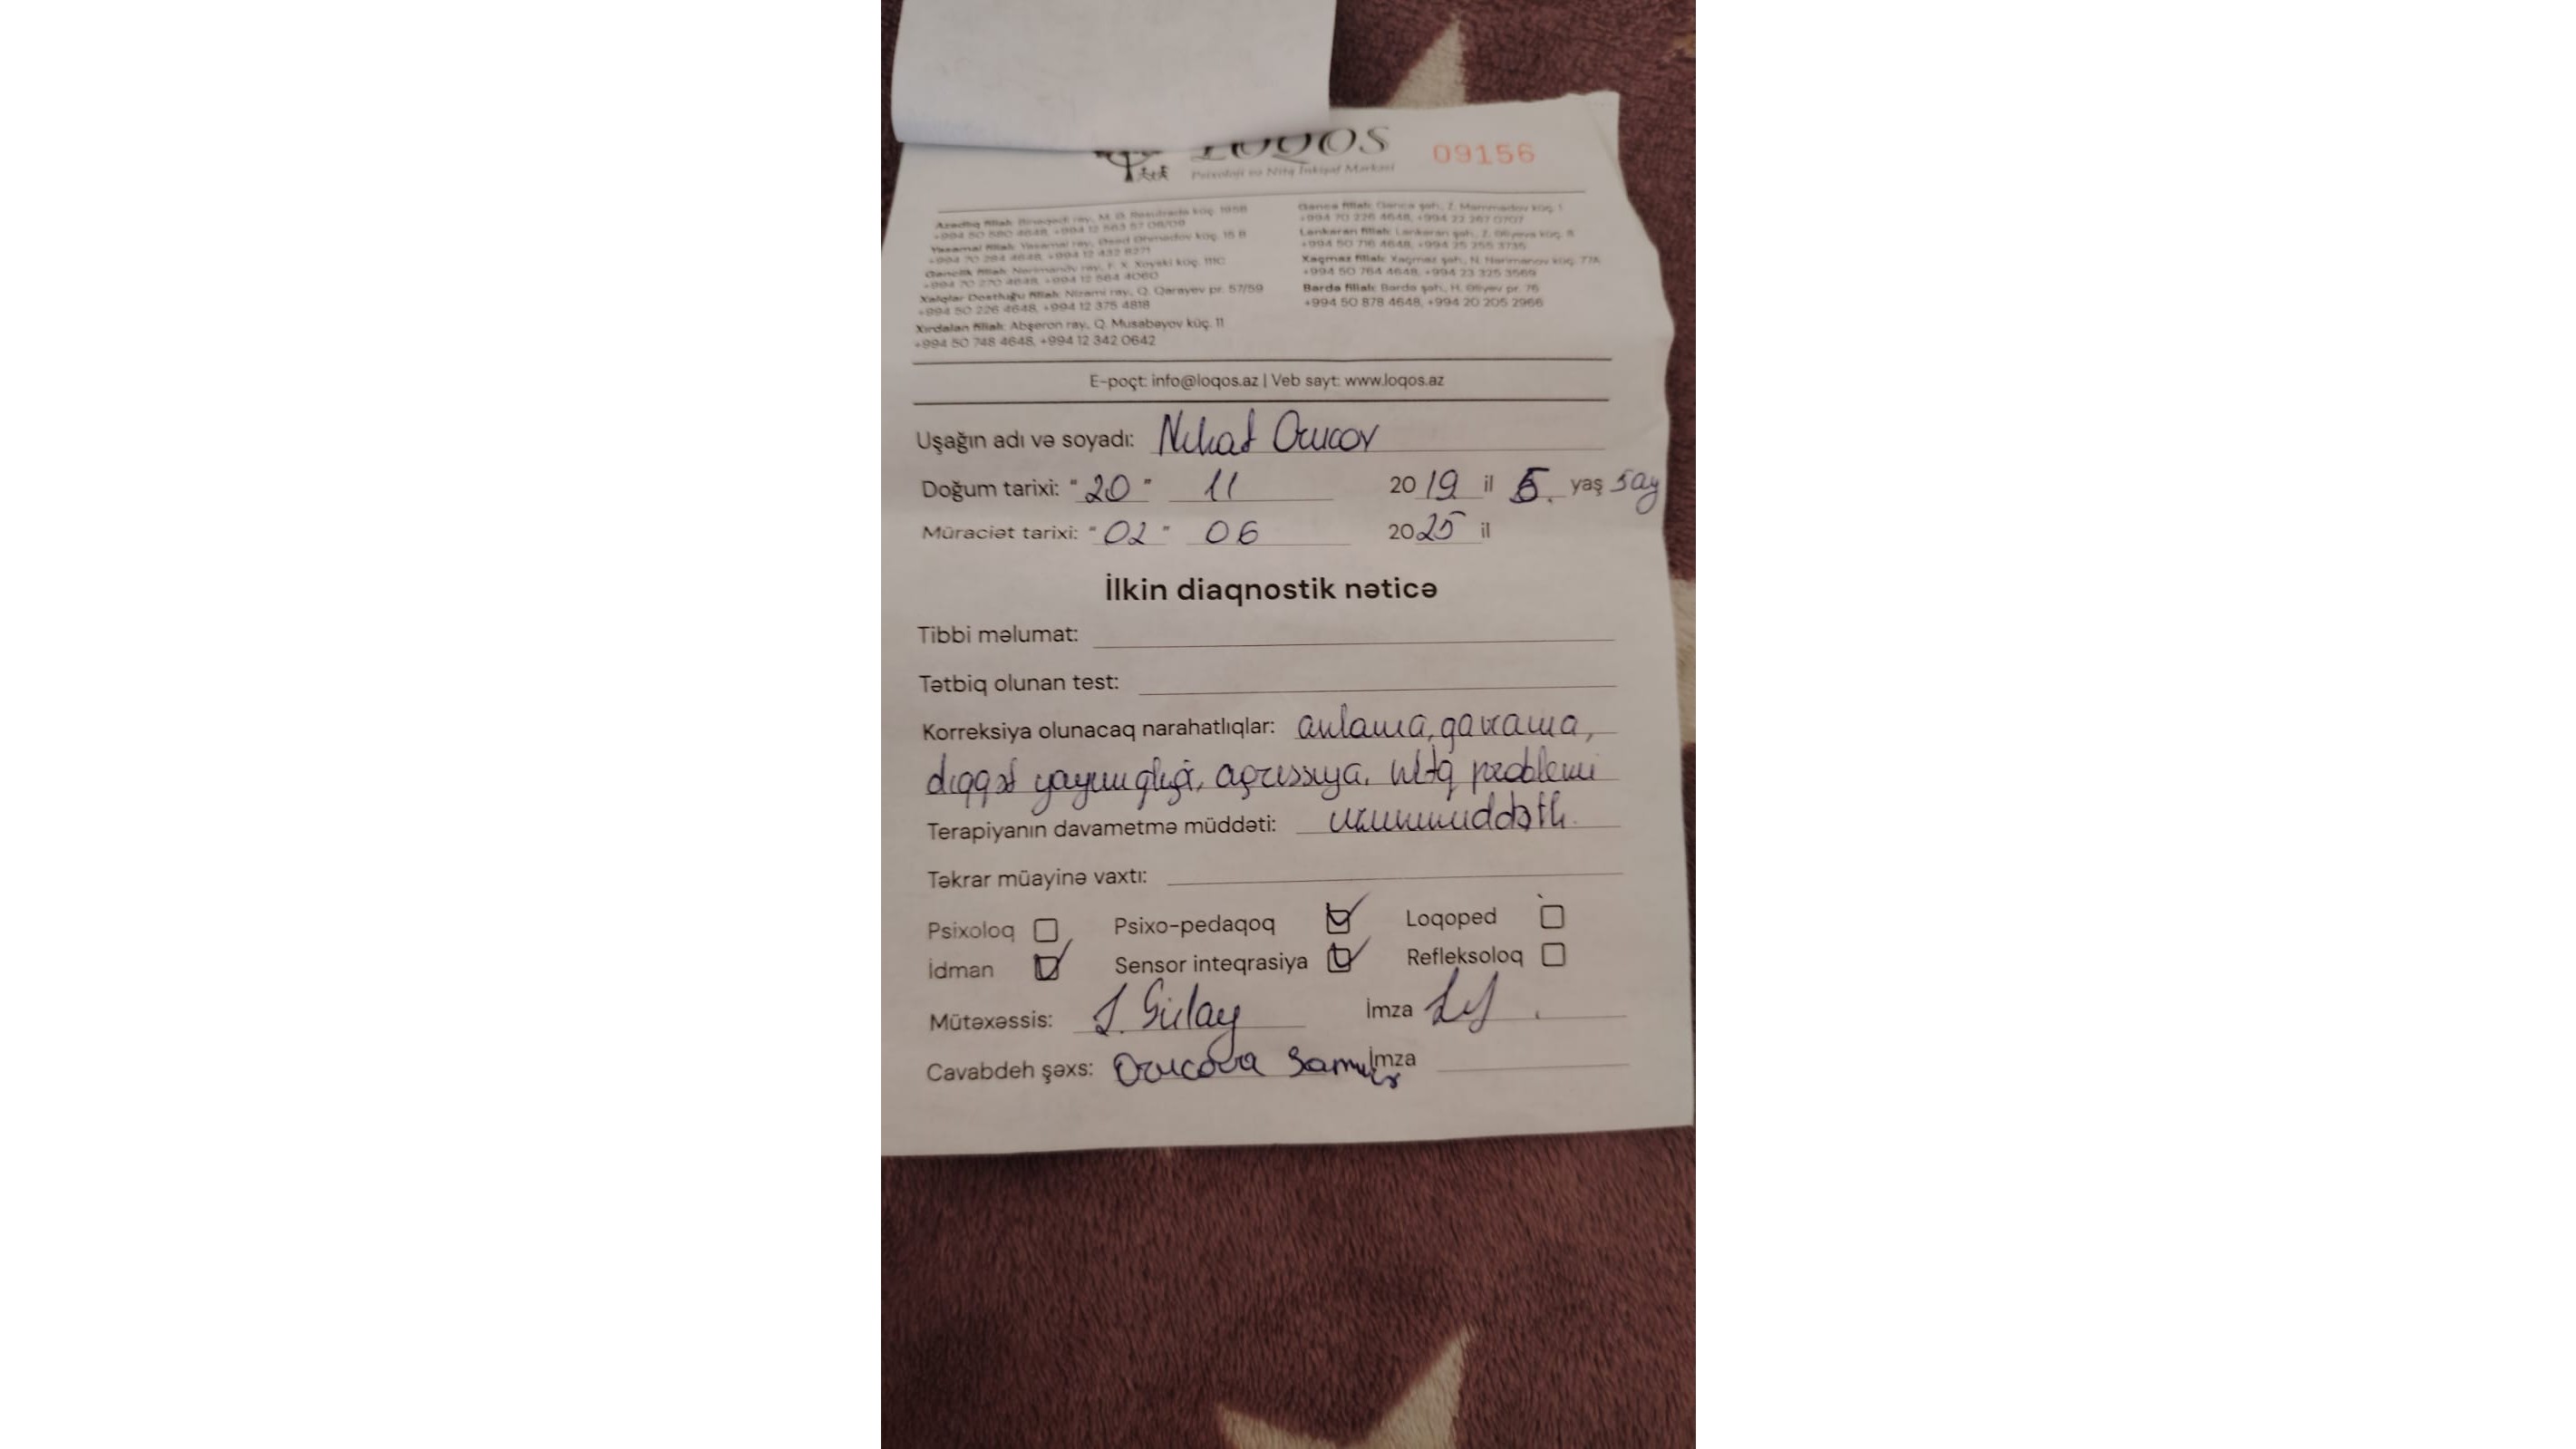 LOQOS 09156
Psixoloji və Nitq İnkişaf Mərkəzi
Azadlıq filialı: Binəqədi ray., M. Ə. Rəsulzadə küç. 195B
+994 50 580 4648, +994 12 563 57 08/09
Yasamal filialı: Yasamal ray., Əsəd Əhmədov küç. 15 B
+994 70 284 4648, +994 12 432 8271
Gənclik filialı: Nərimanov ray., F. X. Xoyski küç. 111C
+994 70 270 4648, +994 12 564 4060
Xalqlar Dostluğu filialı: Nizami ray., Q. Qarayev pr. 57/59
+994 50 226 4648, +994 12 375 4818
Xırdalan filialı: Abşeron ray., Q. Musabəyov küç. 11
+994 50 748 4648, +994 12 342 0642
Gəncə filialı: Gəncə şəh., Z. Məmmədov küç. 1
+994 70 226 4648, +994 22 267 0707
Lənkəran filialı: Lənkəran şəh., Z. Əliyeva küç. 8
+994 50 716 4648, +994 25 255 3735
Xaçmaz filialı: Xaçmaz şəh., N. Nərimanov küç. 77A
+994 50 764 4648, +994 23 325 3569
Bərdə filialı: Bərdə şəh., H. Əliyev pr. 76
+994 50 878 4648, +994 20 205 2966
E-poçt: info@loqos.az | Veb sayt: www.loqos.az
Uşağın adı və soyadı: Nihad Orucov
Doğum tarixi: "20" 11 2019 il 5. yaş 5ay
Müraciət tarixi: "02" 06 2025 il
İlkin diaqnostik nəticə
Tibbi məlumat:
Tətbiq olunan test:
Korreksiya olunacaq narahatlıqlar: anlama, qavrama,
diqqət yayınqlığı, aqressiya, nitq problemi
Terapiyanın davametmə müddəti: uzunmüddətli.
Təkrar müayinə vaxtı:
Psixoloq Psixo-pedaqoq Loqoped
İdman Sensor inteqrasiya Refleksoloq
Mütəxəssis: Gülay İmza
Cavabdeh şəxs: Orucova İmza